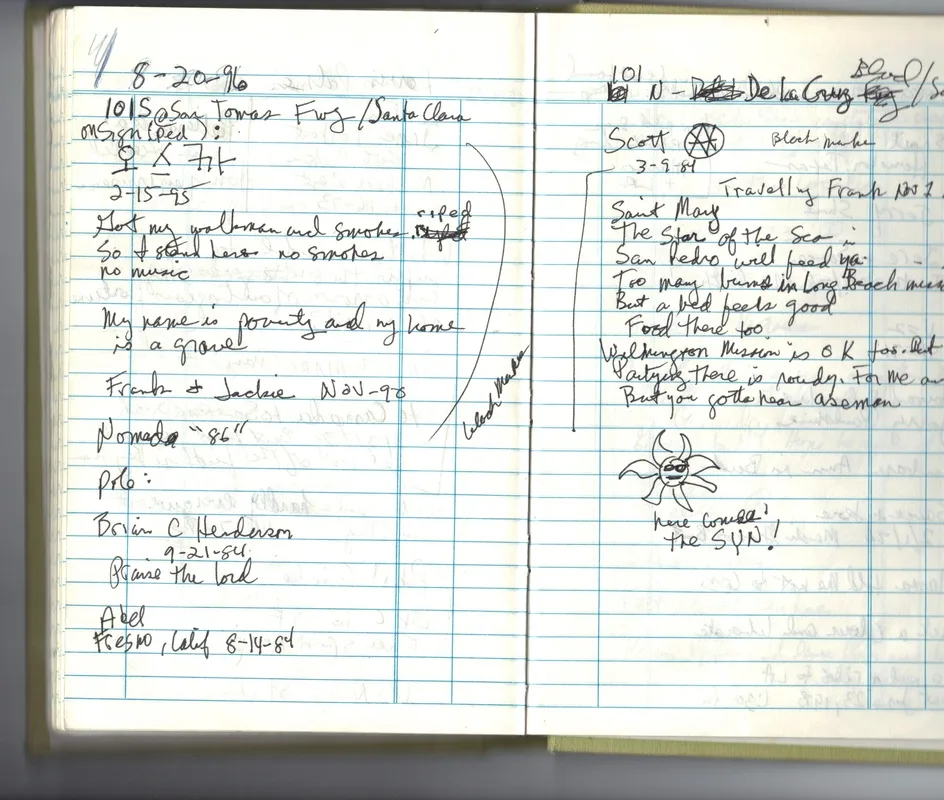 8-20-96
101S @ San Tomas Fwy / Santa Clara
on Sign (ped):
오스카
2-15-95
Got my walkman and smokes riped
So I stand here no smokes
no music
My name is poverty and my home
is a grave
Frank & Jackie Nov-90
Nomada "86"
black marker
pole:
Brian C Henderson
9-21-84
Praise the Lord
Abel
Fresno, Calif 8-14-84
101 N - De La Cruz Blvd /
Scott
Black marker
3-9-84
Travelling Frank Nov
Saint Mary
The Star of the Sea
San Pedro will feed ya.
Too many bums in Long Beach
But a bed feels good
Food there too
Wilmington Mission is OK too. But
Partying there is rowdy. For me
But you gotta hear a sermon
here comes!
the SUN!